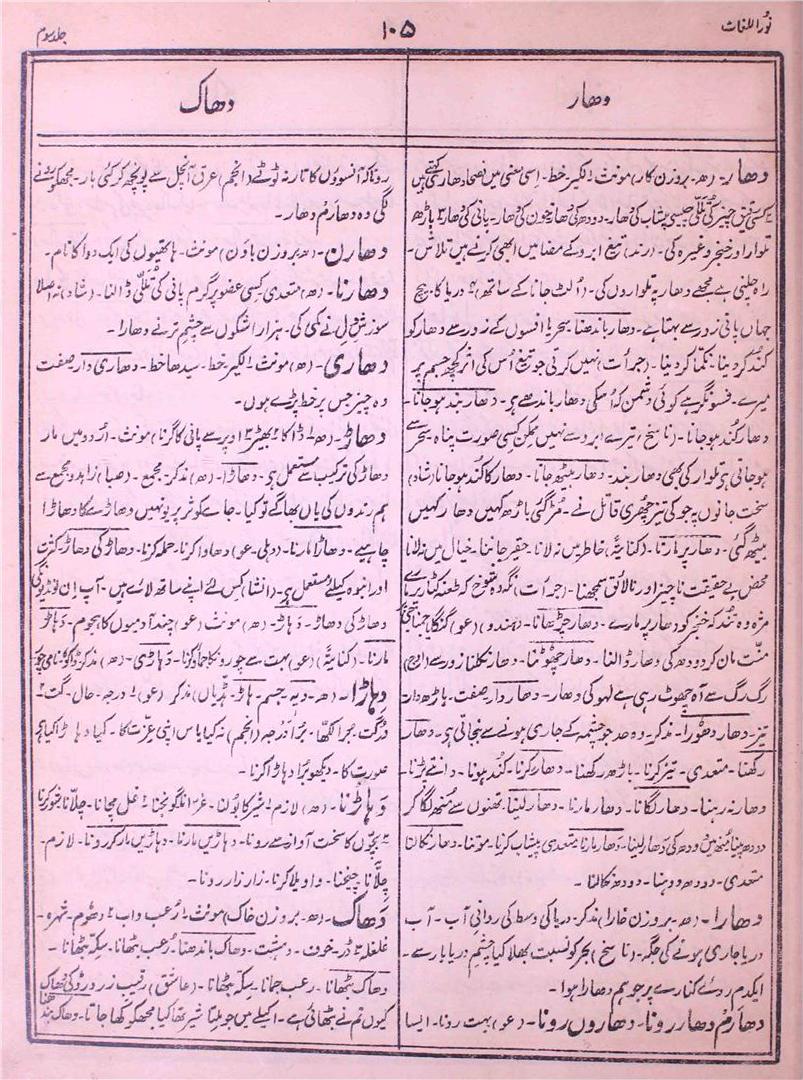 نُور اللغات
۱۰۵
جلد سوم
دھار
دھاک
دھار۔ (ھ۔ بروزن کار) مونث ۱ لکیر۔ خط۔ اِسی معنی میں نصحا دھاری کہتے ہیں
۲ کسی رقیق چیز کی تُلّلی جیسے پیشاب کی دھار۔ دودھ کی دھار خون کی دھار۔ پانی کی دھار ۳ باڑھ
تلوار اور خنجر وغیرہ کی۔ (رند) تیغ ابرو کے مضامیں ابھی کرنے ہیں تلاش۔
راہ چلنی ہے مجھے دھار پہ تلواروں کی۔ (اُلٹ جانا کے ساتھ) ۴ دریا کا۔ بیچ
جہاں پانی زور سے بہتا ہے۔ دھار باندھنا۔ سحر یا افسوں کے زور سے دھار کو
کند کر دینا۔ نکمّا کر دینا۔ (جرأت) نہیں کرتی جو تیغ اُس کی اثر کچھ جسم پر
میرے۔ فسونگر ہے کوئی دشمن کہ اُسکی دھار باندھے ہے۔ دھار بند ہو جانا۔
دھار کند ہو جانا۔ (ناسخ) تیرے ابرو سے نہیں ممکن کسی صورت پناہ۔ سحر سے
ہو جاتی ہے تلوار کی بھی دھار بند۔ دھار بیٹھ جانا۔ دھار کا کُند ہو جانا (شاد)
سخت جانوں پہ جو کی تیز چھری قاتل نے۔ مُڑ گئی باڑھ کہیں دھار کہیں
بیٹھ گئی۔ دھار پر مارنا۔ (کنایۃً) خاطر میں نہ لانا۔ حقیر جاننا۔ خیال میں نہ لانا
محض بے حقیقت ناچیز اور نالائق سمجھنا۔ (جرأت)
مزہ وہ تُند کہ خنجر کو دھار پر مارے۔ دھار چڑھانا۔ (ہندو) (عو) گنگا جمنا
منّت مان کر دودھ کی دھار ڈالنا۔ دھار چھوٹنا۔ دھار نکلنا زور سے
رگ رگ سے آہ چھوٹ رہی ہے لہو کی دھار۔ دھار دار۔ صفت۔ باڑھ دار۔
تیز۔ دھار دھورا۔ مذکر۔ وہ حد جو چشمہ کے جاری ہونے سے بن جاتی ہے۔ دھار
رکھنا۔ متعدی۔ تیز کرنا۔ باڑھ رکھنا۔ دھار گرنا۔ کند ہونا۔ دانے پڑنا۔
دھار نہ رہنا۔ دھار لگانا۔ دھار مارنا۔ دھار لینا۔ تھنوں سے مُنھ لگا کر
دودھ پینا مُنھ میں دودھ کی دھار لینا۔ دھار مارنا متعدی پیشاب کرنا۔ موتنا۔ دھار نکالنا
متعدی۔ دودھ دوہنا۔ دودھ نکالنا۔
دھارا۔ (ھ۔ بروزن خارا) مذکر۔ دریا کی وسط کی روانی آب۔ آب
دریا جاری ہونے کی جگہ۔ (ناسخ) بحر کو نسبت بھلا کیا چشم دریا بار سے۔
ایکدم روئے کنارے پر جو ہم دھارا ہوا۔
دھارم دھار رونا۔ دھاروں رونا۔ (عو) بہت رونا۔ ایسا
رونا کہ آنسوؤں کا تار نہ ٹوٹے (انجم) عرق آنچل سے پونچھ کر کئی بار۔ مجھکو رونے
لگی وہ دھارم دھار۔
دھارن۔ (ھ بروزن ہاون) مونث۔ ہاتھیوں کی ایک دوا کا نام۔
دھارنا۔ (ھ) متعدی کسی عضو پر گرم پانی کی تُلّلی ڈالنا۔ (شاد) نہ اصلا
سوزش دل نے کمی کی۔ ہزار اشکوں سے چشم تر نے دھارا۔
دھاری۔ (ھ) مونث ۱ لکیر۔ خط۔ سیدھا خط۔ دھاری دار صفت
وہ چیز جس پر خط پڑے ہوں۔
دھاڑ۔ (ھ ۱ ڈاکا ۲ بھیڑ ۳ اوپر سے پانی کا گرنا) مونث۔ اُردو میں مار
دھاڑ کی ترکیب سے مستعمل ہے۔ دھاڑا۔ (ھ) مذکر۔ مجمع۔ (صبا) زاہدو مجمع سے
ہم رندوں کی یاں بھاگے تو کیا۔ جاے کوثر پر یونہیں دھاڑے کا دھاڑا
چاہیے۔ دھاڑا مارنا۔ (دہلی۔ عو) دھاوا کرنا۔ حملہ کرنا۔ دھاڑ کی دھاڑ۔ کثرت
اور انبوہ کیلئے مستعمل ہے۔ (انشا) کس لئے اپنے ساتھ لاے ہیں۔ آپ اِن لونڈیوں کی
دھاڑ کی دھاڑ۔ دَہاڑ۔ (ھ) مونث (عو) چند آدمیوں کا ہجوم۔ دَہاڑ
مارنا۔ (کنایۃً) (عو) بہت سے چوروں کا حملہ کرنا۔ دھاڑی۔ (ھ) مذکر۔ ڈاکو۔ نامی چور
دِہاڑا۔ (ھ۔ دیہ۔ جسم۔ ہاڑ۔ ہڈیاں) مذکر (عو) ۱ درجہ۔ حال۔ گت ۲
دُرگت۔ بُرا لکھا۔ بُرا درجہ (انجم) نہ کیا پاس اپنی عزّت کا۔ کیا دہاڑا کیا ہے
صورت کا۔ دیکھو بُرا دہاڑا کرنا۔
دَہاڑنا۔ (ھ) لازم ۱ شیر کا بولنا۔ غرّانا گونجنا ۲ غل مچانا۔ چِلّانا شور کرنا
۳ بچّوں کا سخت آواز سے رونا۔ دہاڑیں مارنا۔ دہاڑیں مار کر رونا۔ لازم۔
چِلّانا چیخنا۔ واویلا کرنا۔ زار زار رونا۔
دھاک۔ (ھ۔ بروزن خاک) مونث ۱ رُعب داب ۲ دھوم۔ شہرہ۔
غلغلہ ۳ ڈر۔ خوف۔ دہشت۔ دھاک باندھنا۔ رُعب بٹھانا۔ سِکّہ بٹھانا۔
دھاک بٹھانا۔ رعب جمانا۔ سِکّہ بٹھانا۔ (عاشق) رقیب زرد رو کی دھاک
کیوں تم نے بٹھائی ہے۔ اکیلے میں جو ملتا شیر تھا کیا مجھکو کھا جاتا۔ دھاک بندھنا